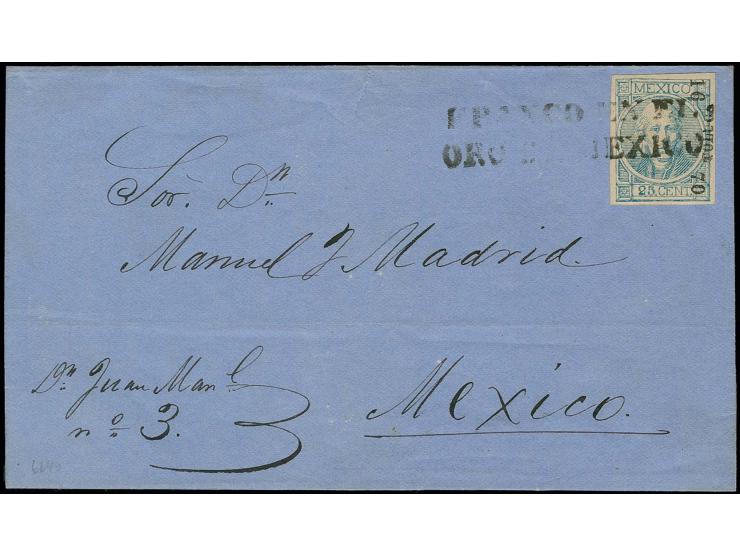 MEXICO
FRANCO EN EL
ORO DE MEXICO
25 CENT
16
70
Sor. Dn
Manuel J Madrid.
Dn Juan Manl
no 3.
Mexico.